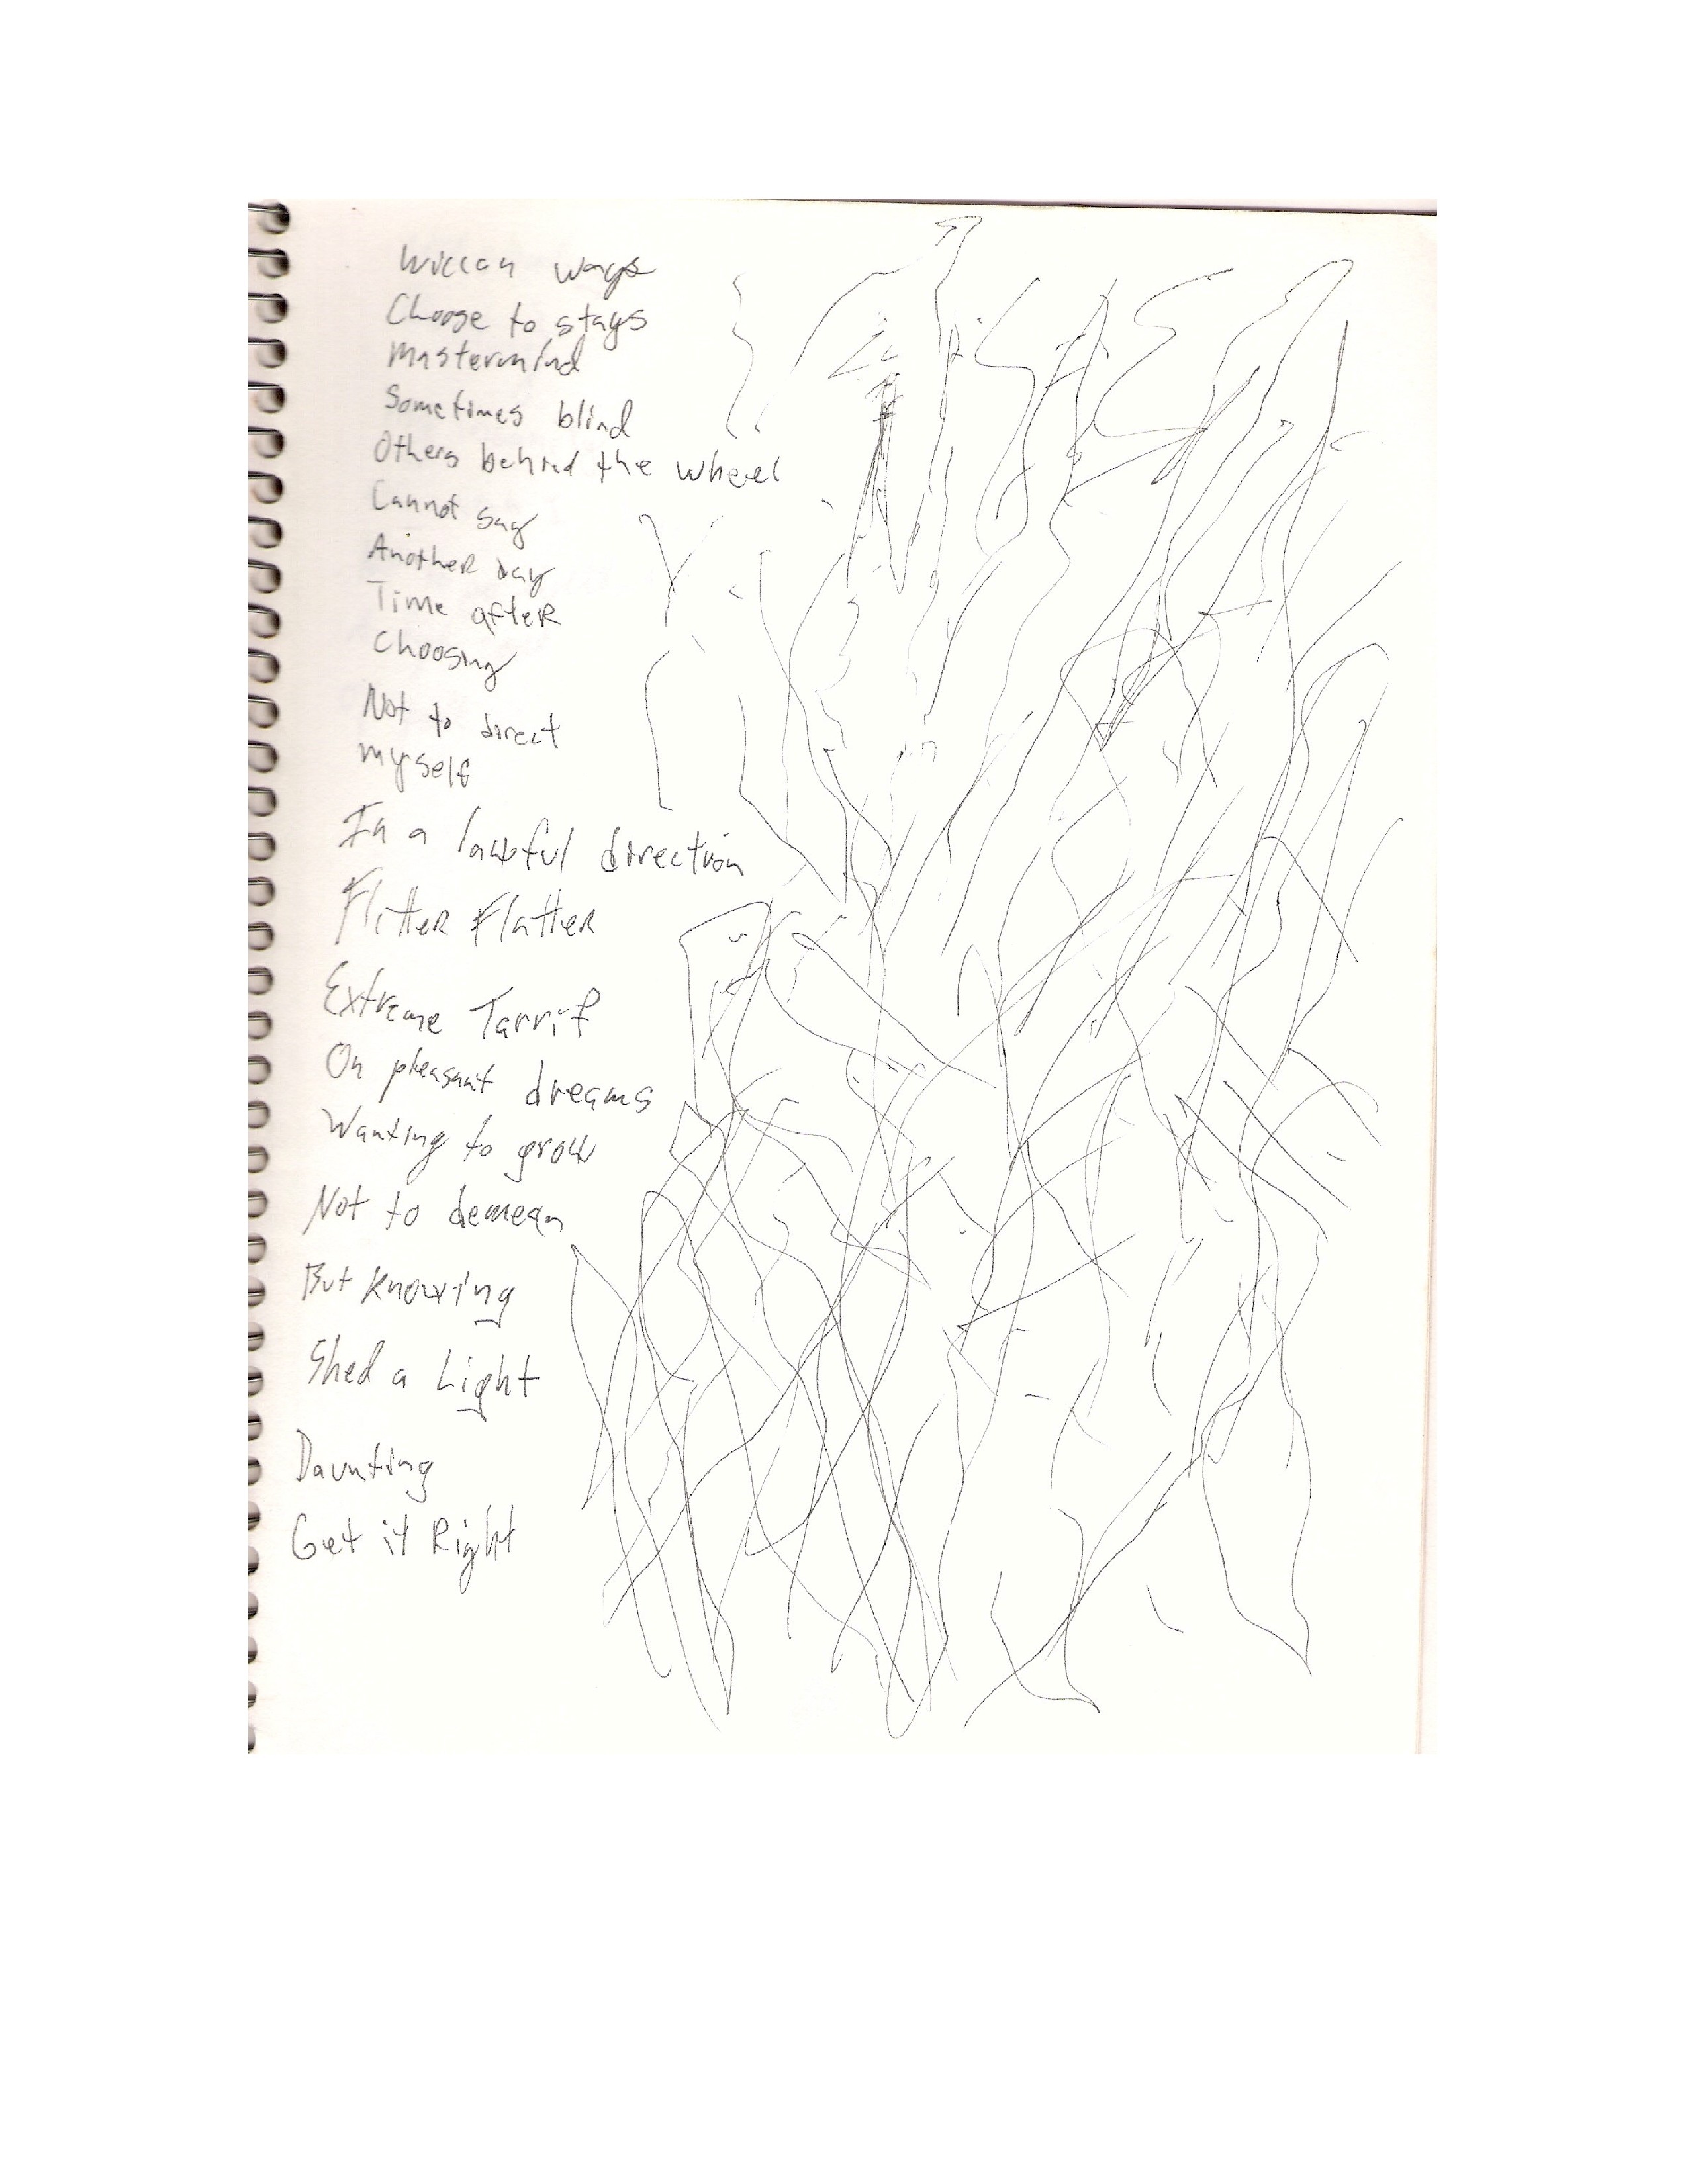 Wiccan ways
Choose to stays
Mastermind
Sometimes blind
Others behind the wheel
Cannot say
Another day
Time after
Choosing
Not to direct
myself
In a lawful direction
Flitter Flatter
Extreme Tarrif
On pleasant dreams
Wanting to grow
Not to demean
But knowing
Shed a Light
Daunting
Get it Right